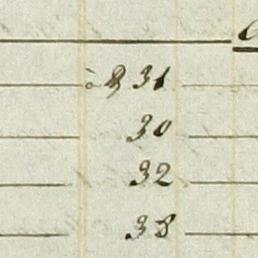 31
30
32
38